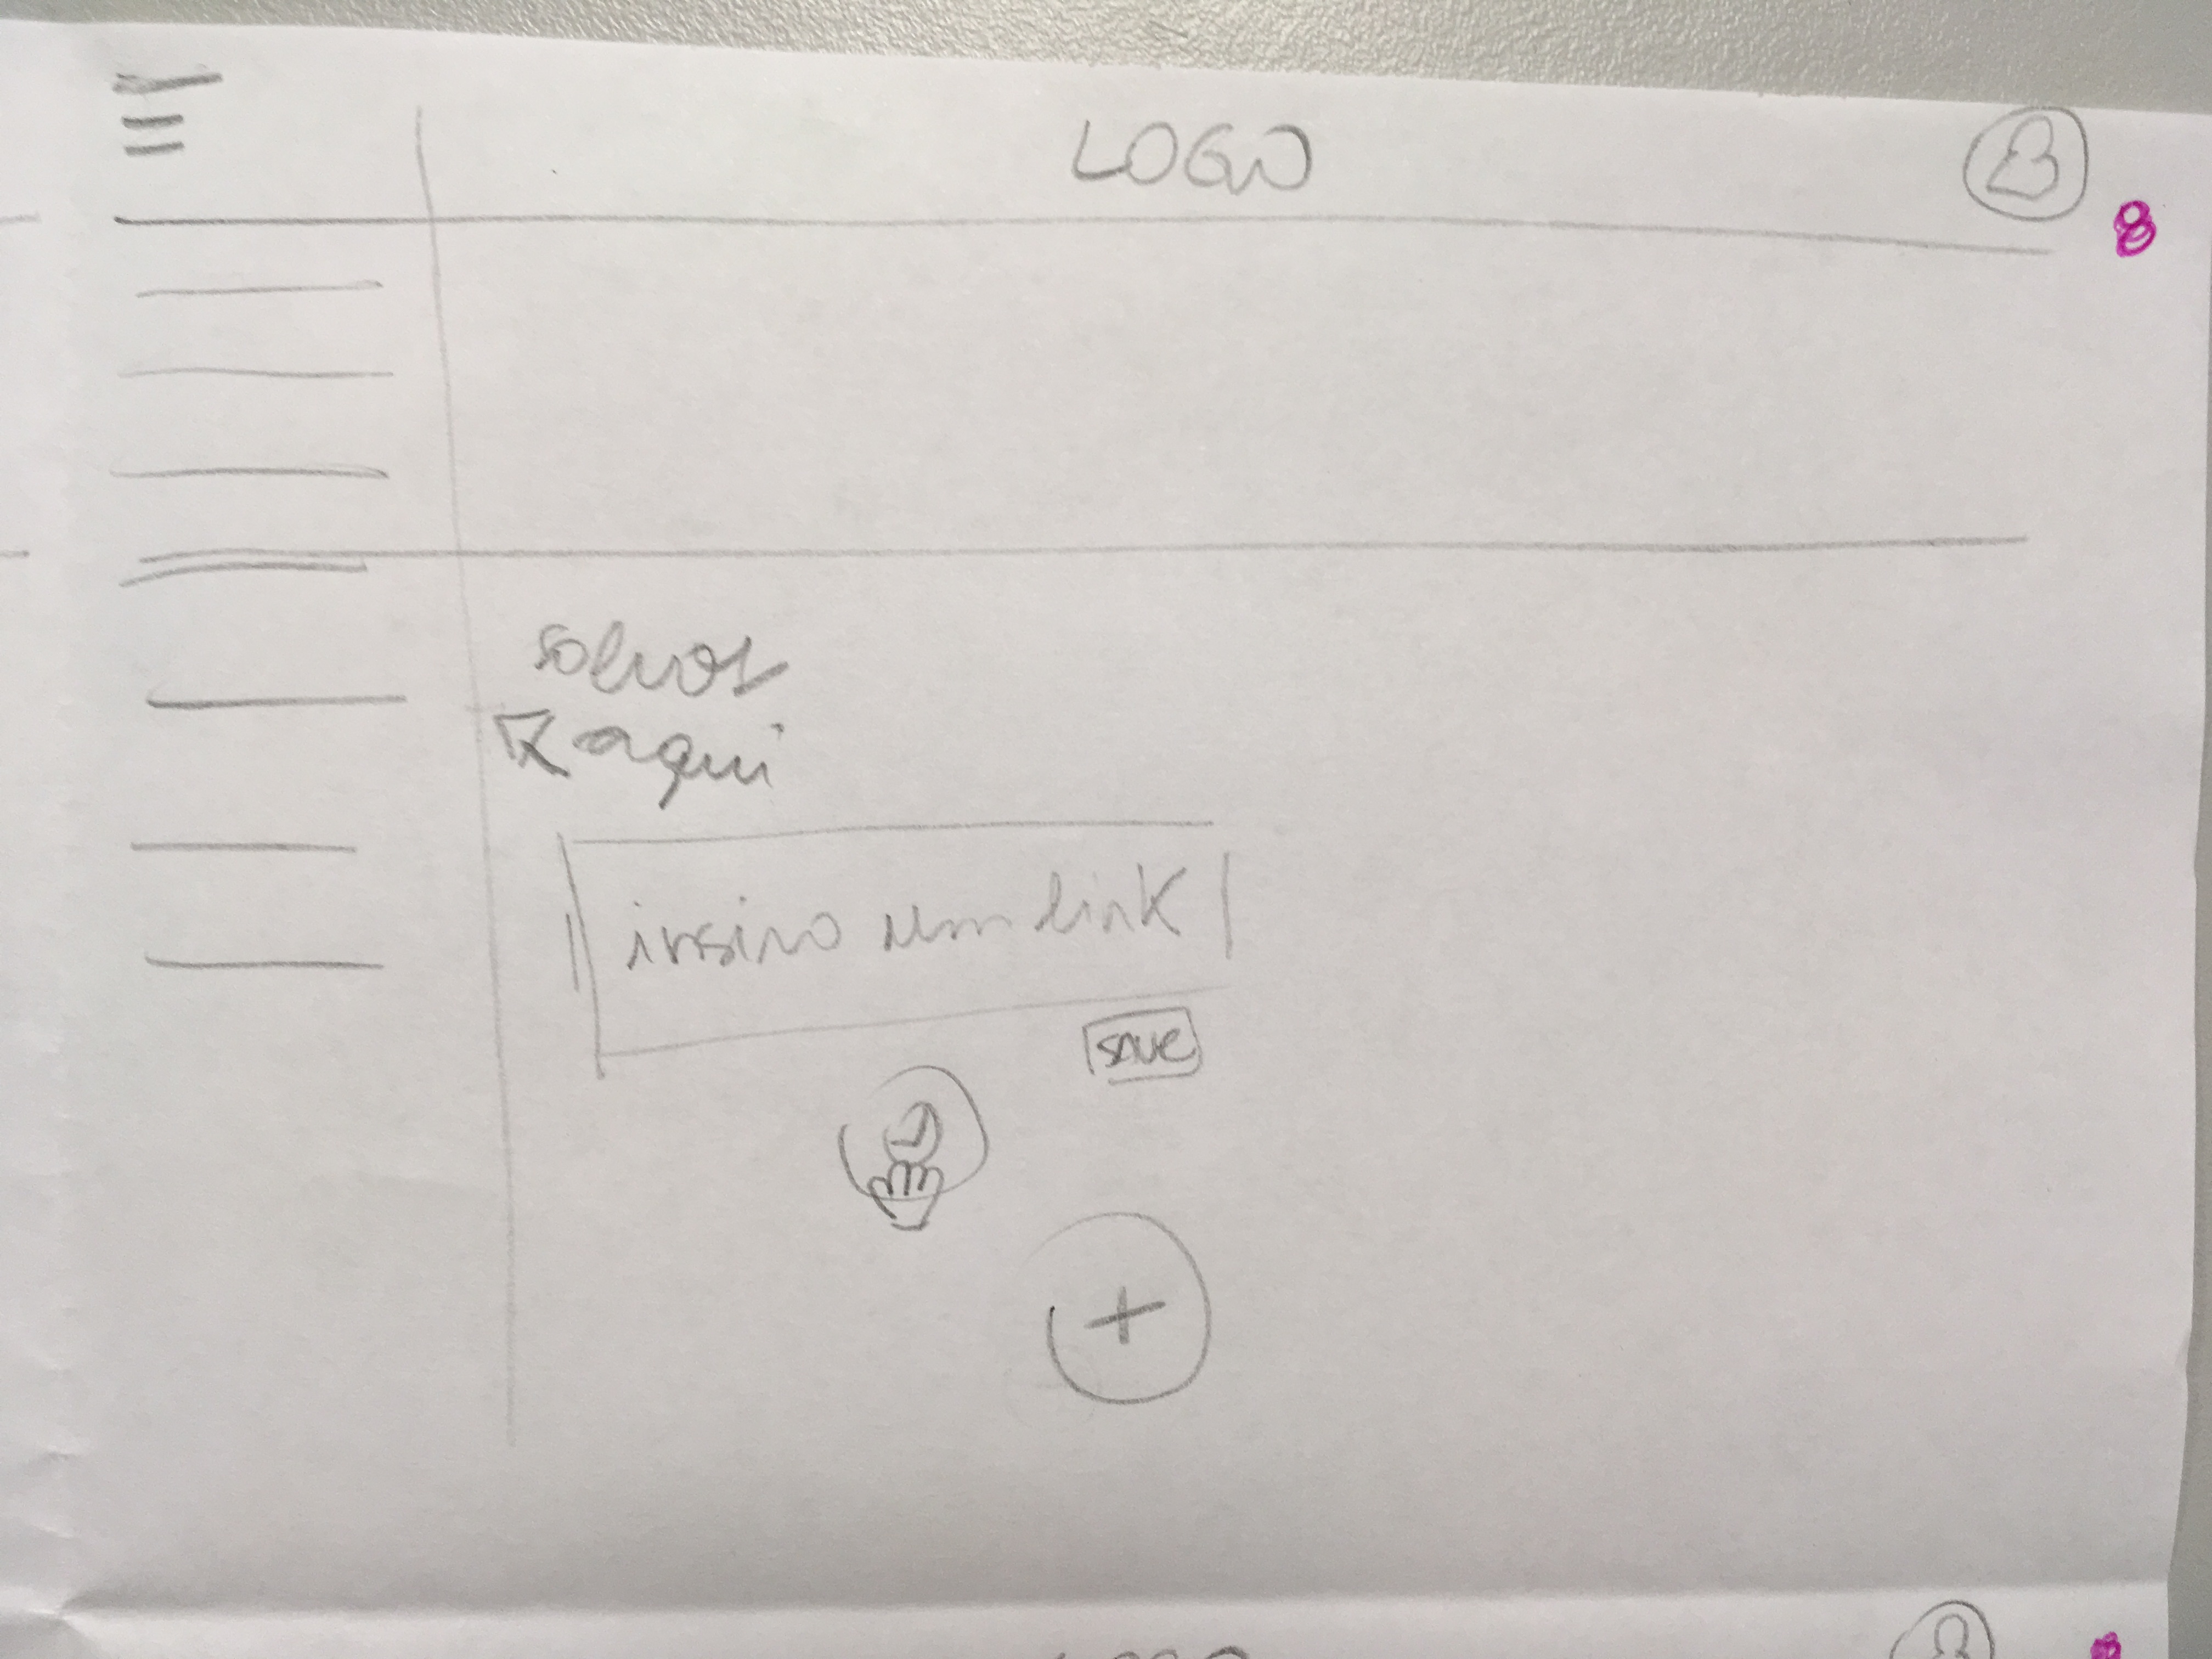 LOGO
8
salvar
aqui
insira um link
save
+